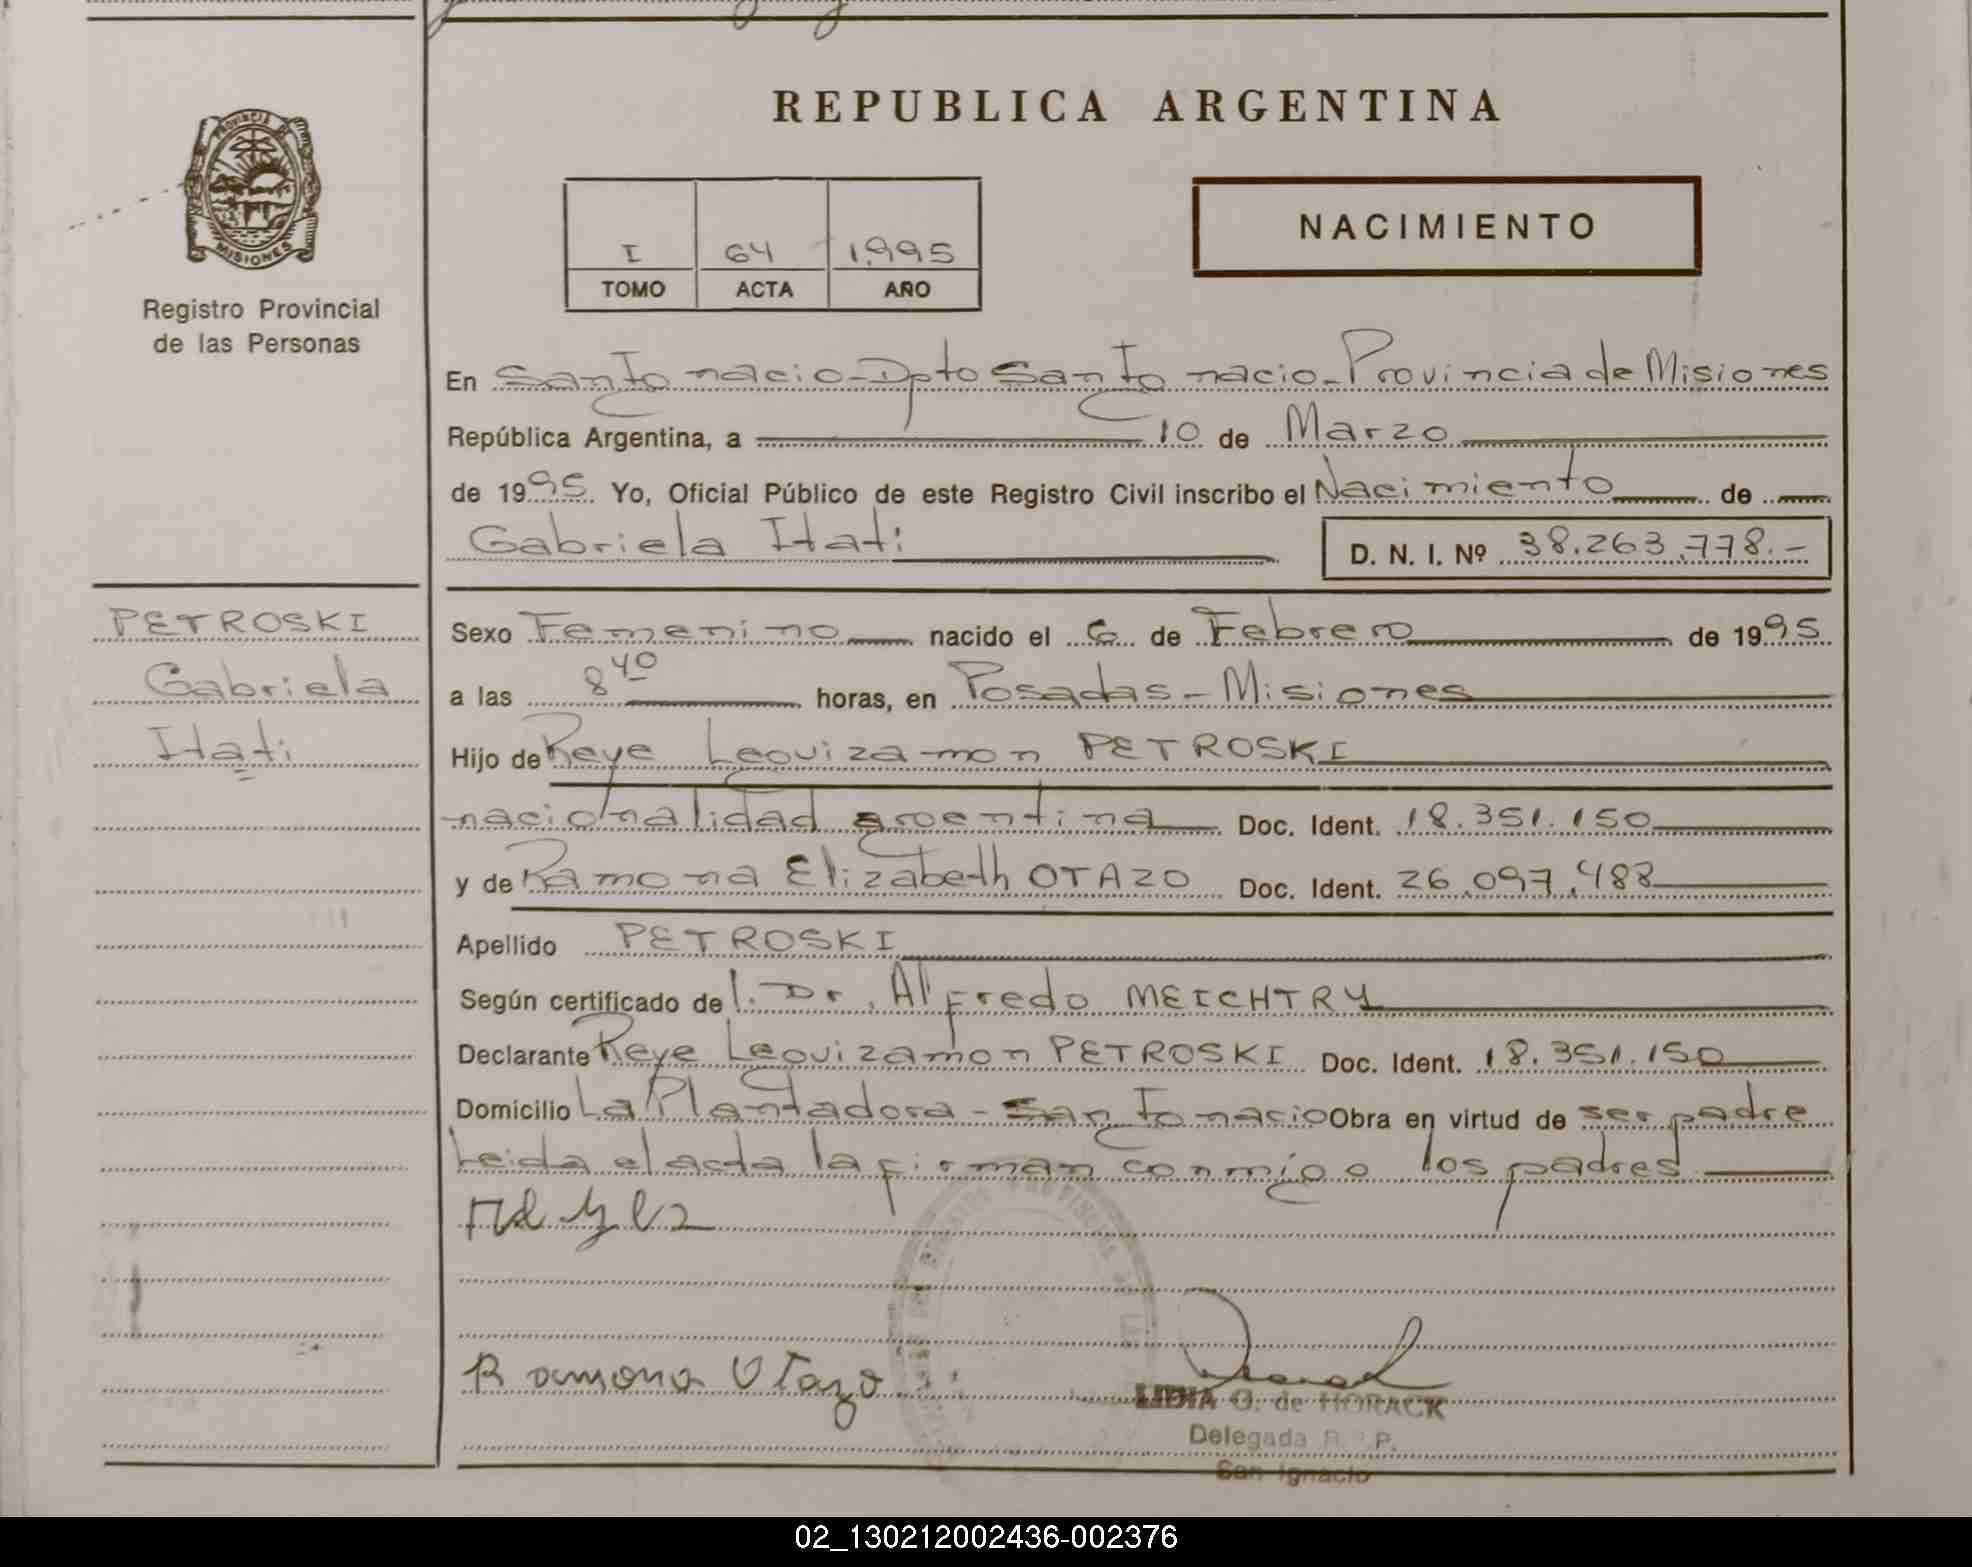 REPUBLICA ARGENTINA
PROVINCIA DE
MISIONES
Registro Provincial
de las Personas
I 64 1.995
TOMO ACTA AÑO
NACIMIENTO
En San Ignacio - Dpto San Ignacio - Provincia de Misiones
República Argentina, a 10 de Marzo
de 1995. Yo, Oficial Público de este Registro Civil inscribo el Nacimiento de
Gabriela Itatí D. N. I. Nº 38.263.778.-
PETROSKI
Gabriela
Itatí
Sexo Femenino nacido el 6 de Febrero de 1995
a las 8 40 horas, en Posadas - Misiones
Hijo de Reye Leguizamon PETROSKI
nacionalidad argentina Doc. Ident. 18.351.150
y de Ramona Elizabeth OTAZO Doc. Ident. 26.097.488
Apellido PETROSKI
Según certificado de l. Dr. Alfredo MEICHTRY
Declarante Reye Leguizamon PETROSKI Doc. Ident. 18.351.150
Domicilio La Plantadora - San Ignacio Obra en virtud de ser padre
Leida el acta la firman conmigo los padres
Ramona Otazo
LIDIA G. de HORACK
Delegada R. P. P.
San Ignacio
02_130212002436-002376